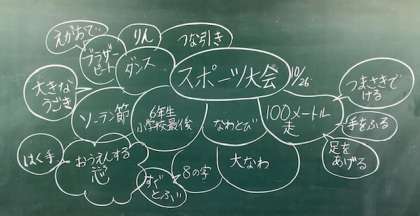 えがおで
ブラザー
ビート
りん
つな引き
ダンス
スポーツ大会
10/26
大きな
うごき
つまさきで
ける
ソーラン節
6年生
小学校最後
なわとび
100メートル
走
手をふる
足を
あげる
はく手
おうえんする
芯
8の字
大なわ